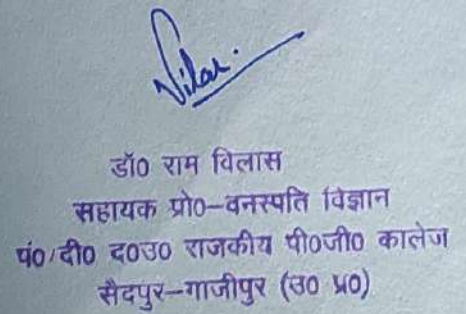 Vilas.
डॉ0 राम विलास
सहायक प्रो0-वनस्पति विज्ञान
पं0 दी0 द0उ0 राजकीय पी0जी0 कालेज
सैदपुर-गाजीपुर (उ0 प्र0)